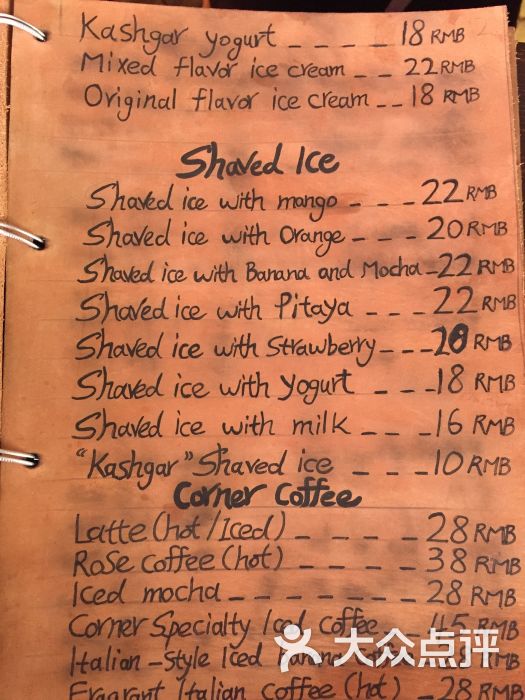 Kashgar yogurt _ _ _ _ 18 RMB
Mixed flavor ice cream _ _ 22 RMB
Original flavor ice cream _ _ 18 RMB
Shaved Ice
Shaved ice with mango _ _ _ 22 RMB
Shaved ice with Orange _ _ _ 20 RMB
Shaved ice with Banana and Mocha _ 22 RMB
Shaved ice with Pitaya _ _ _ 22 RMB
Shaved ice with Strawberry _ _ _ 20 RMB
Shaved ice with yogurt _ _ _ 18 RMB
Shaved ice with milk _ _ _ 16 RMB
"Kashgar" Shaved ice _ _ _ 10 RMB
Corner Coffee
Latte (hot/Iced) _ _ _ _ 28 RMB
Rose coffee (hot) _ _ _ _ 38 RMB
Iced mocha _ _ _ _ _ _ 28 RMB
Corner Specialty Iced coffee _ 45 RMB
Italian-Style Iced RMB
Fragrant Italian coffee (hot) 28 RMB
大众点评